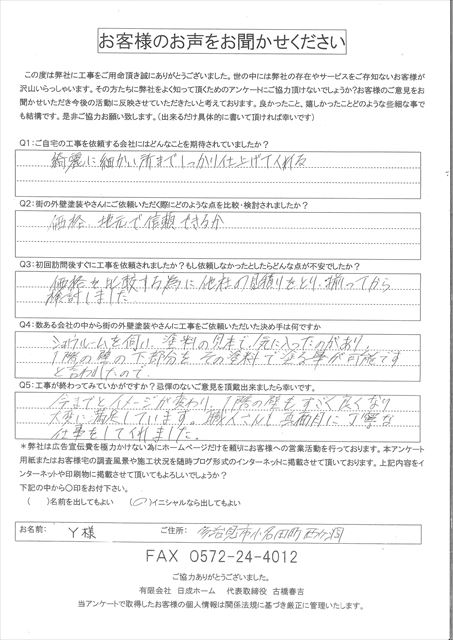 お客様のお声をお聞かせください
この度は弊社に工事をご用命頂き誠にありがとうございました。世の中には弊社の存在やサービスをご存知ないお客様が
沢山いらっしゃいます。その方たちに弊社をよく知って頂くためのアンケートにご協力頂けないでしょうか?お客様のご意見をお
聞かせいただき今後の活動に反映させていただきたいと考えております。良かったこと、嬉しかったことどのような些細な事で
も結構です。是非ご協力お願い致します。(出来るだけ具体的に書いて頂ければ幸いです)
Q1:ご自宅の工事を依頼する会社にはどんなことを期待されていましたか?
綺麗に細かい所までしっかり仕上げてくれる
Q2:街の外壁塗装やさんにご依頼いただく際にどのような点を比較・検討されましたか?
価格、地元で信頼できるか
Q3:初回訪問後すぐに工事を依頼されましたか?もし依頼しなかったとしたらどんな点が不安でしたか?
価格を比較する為に他社の見積りをとり、揃ってから
検討しました
Q4:数ある会社の中から街の外壁塗装やさんに工事をご依頼いただいた決め手は何ですか
ショウルームを伺い、塗料の見本で気に入ったのがあり、
1階の壁の下部分をその塗料で塗る事が可能です
と言われたので
Q5:工事が終わってみていかがですか?忌憚のないご意見を頂戴出来ましたら幸いです。
今までとイメージが変わり、1階の壁もすごく良くなり
大変に満足しています。職人さんも真面目に丁寧な
仕事をしてくれました。
*弊社は広告宣伝費を極力かけない為にホームページだけを頼りにお客様への営業活動を行っております。本アンケート
用紙またはお客様宅の調査風景や施工状況を随時ブログ形式のインターネットに掲載させて頂いております。上記内容をイ
ンターネットや印刷物に掲載させて頂いてもよろしいでしょうか?
下記の中から○印をお付下さい。
( )名前を出してもよい (○)イニシャルなら出してもよい
お名前: Y様 ご住所: 多治見市小名田町西ケ洞
FAX 0572-24-4012
ご協力ありがとうございました。
有限会社 日成ホーム 代表取締役 古橋春吉
当アンケートで取得したお客様の個人情報は関係法規に基づき厳正に管理いたします。